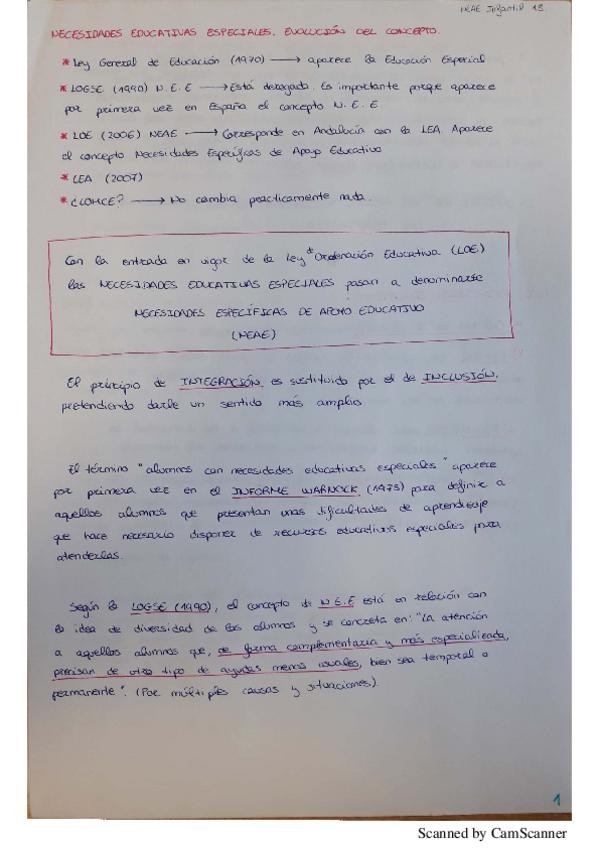 NEAE Infantil 18.
NECESIDADES EDUCATIVAS ESPECIALES. EVOLUCIÓN DEL CONCEPTO.
* Ley General de Educación (1970) → aparece la Educación Especial
* LOGSE (1990) N.E.E → Está derogada. Es importante porque aparece
por primera vez en España el concepto N.E.E
* LOE (2006) NEAE → Corresponde en Andalucía con la LEA. Aparece
el concepto Necesidades Específicas de Apoyo Educativo
* LEA (2007)
* ¿LOMCE? → No cambia prácticamente nada.
Con la entrada en vigor de la Ley Ordenación Educativa (LOE)
las NECESIDADES EDUCATIVAS ESPECIALES pasan a denominarse
NECESIDADES ESPECÍFICAS DE APOYO EDUCATIVO
(NEAE)
El principio de INTEGRACIÓN, es sustituido por el de INCLUSIÓN,
pretendiendo darle un sentido más amplio
El término "alumnos con necesidades educativas especiales" aparece
por primera vez en el INFORME WARNOCK (1978) para definir a
aquellos alumnos que presentan unas dificultades de aprendizaje
que hace necesario disponer de recursos educativos especiales para
atenderlas.
Según la LOGSE (1990), el concepto de N.E.E está en relación con
la idea de diversidad de los alumnos y se concreta en: "La atención
a aquellos alumnos que, de forma complementaria y más especializada,
precisan de otro tipo de ayudas menos usuales, bien sea temporal o
permanente". (Por múltiples causas y situaciones).
1
Scanned by CamScanner